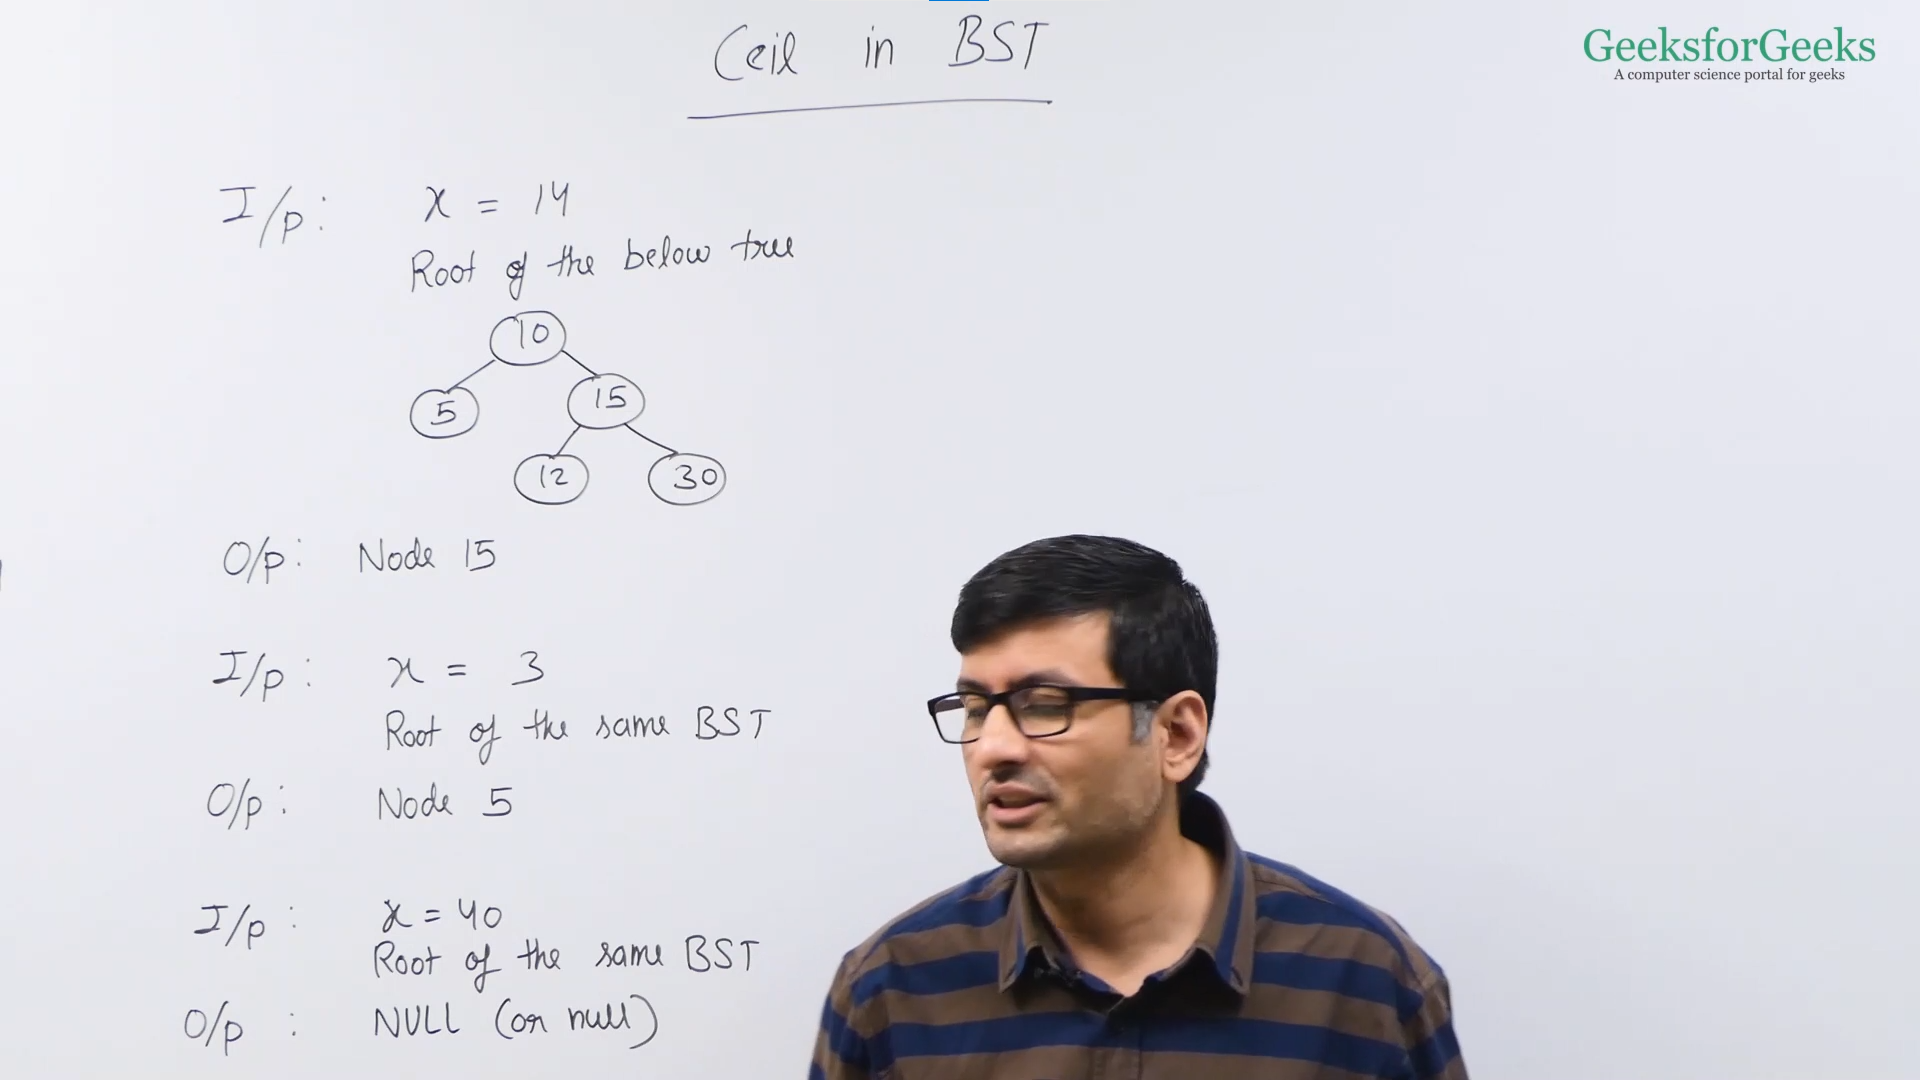 Ceil in BST
GeeksforGeeks
A computer science portal for geeks
I/p: x = 14
Root of the below tree
10
5 15
12 30
O/p: Node 15
I/p: x = 3
Root of the same BST
O/p: Node 5
I/p: x = 40
Root of the same BST
O/p: NULL (or null)